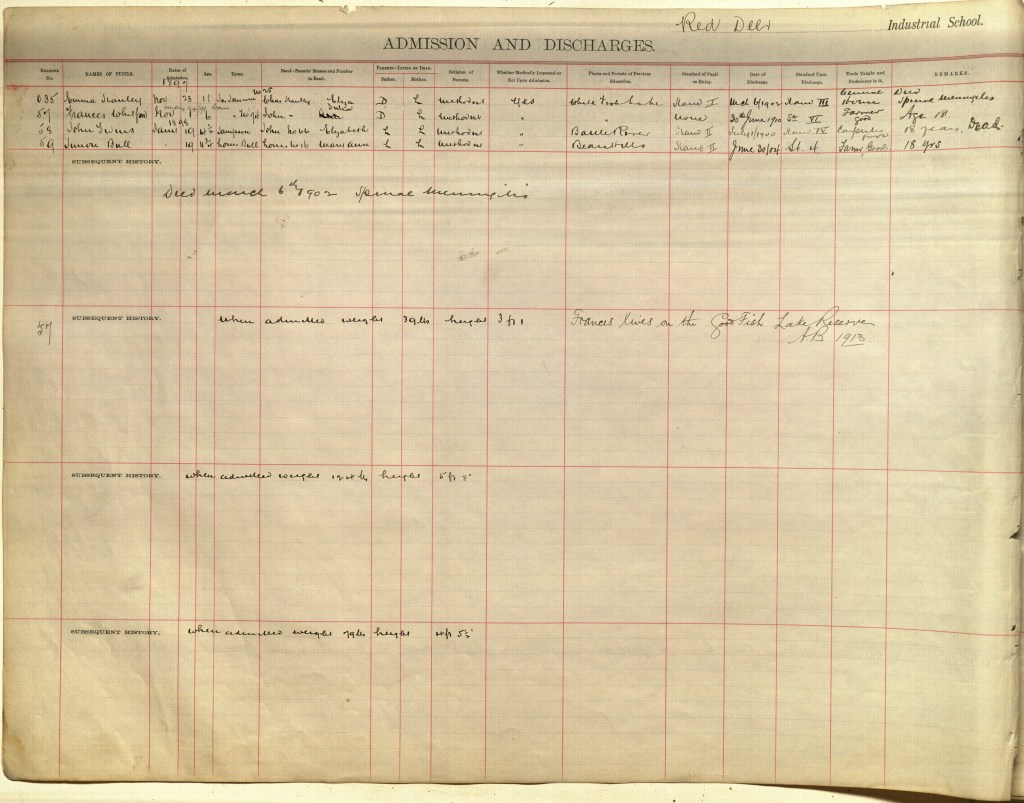 Red Deer Industrial School.
ADMISSION AND DISCHARGES.
Register No. NAMES OF PUPILS. Dates of Admission. Age. Tribe. Band—Parents' Names and Number in Band. PARENTS—LIVING OR DEAD. Father. Mother. Religion of Parents. Whether Medically Inspected or Not Upon Admission. Places and Periods of Previous Education. Standard of Pupil on Entry. Date of Discharge. Standard Upon Discharge. Trade Taught and Proficiency in it. REMARKS.
1897
035 Emma Stanley Nov 23 11 No 25 Chas Stanley Eliza D L Methodist Yes White Fish Lake Stand I Mch 6/1902 Stand III General House Died Spinal Meningitis
57 Frances Whitford Nov 1 6 John D L Methodist " None 30th June 1910 St VI Farmer Good Age 18
1898
58 John 19 John No 66 Elizabeth L L Methodist " Battle River Stand II July 11/1900 Stand IV Carpenter 18 years. Dead.
59 Simon Bull " 19 Louis Bull Louis No 16 Mary Ann L L Methodist " Bears Hills Stand II June 30/04 St. 4 Farm, Good. 18 yrs
SUBSEQUENT HISTORY.
Died March 6th 1902 Spinal Meningitis
57 SUBSEQUENT HISTORY. When admitted weight 39 lbs height 3 ft 1 Frances lives on the Good Fish Lake Reserve
AB 1913
SUBSEQUENT HISTORY. When admitted weight lbs height 5 ft
SUBSEQUENT HISTORY. When admitted weight 79 lbs height 4 ft 5½